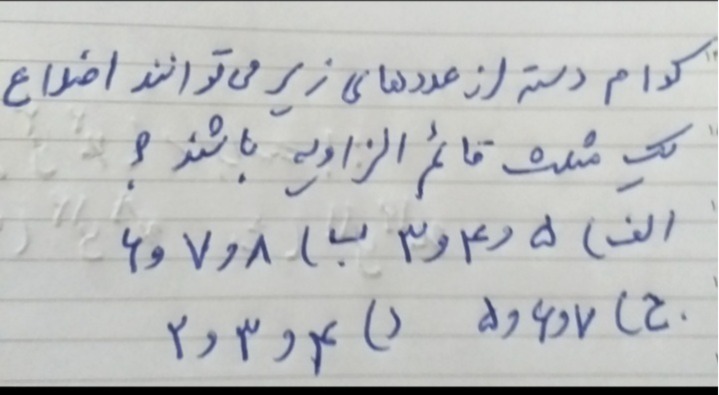 کدام دسته از عددهای زیر می‌توانند اضلاع
یک مثلث قائم الزاویه باشند ؟
الف) ۵ و ۴ و ۳ ب) ۸ و ۷ و ۶
ج) ۷ و ۶ و ۵ د) ۴ و ۳ و ۲